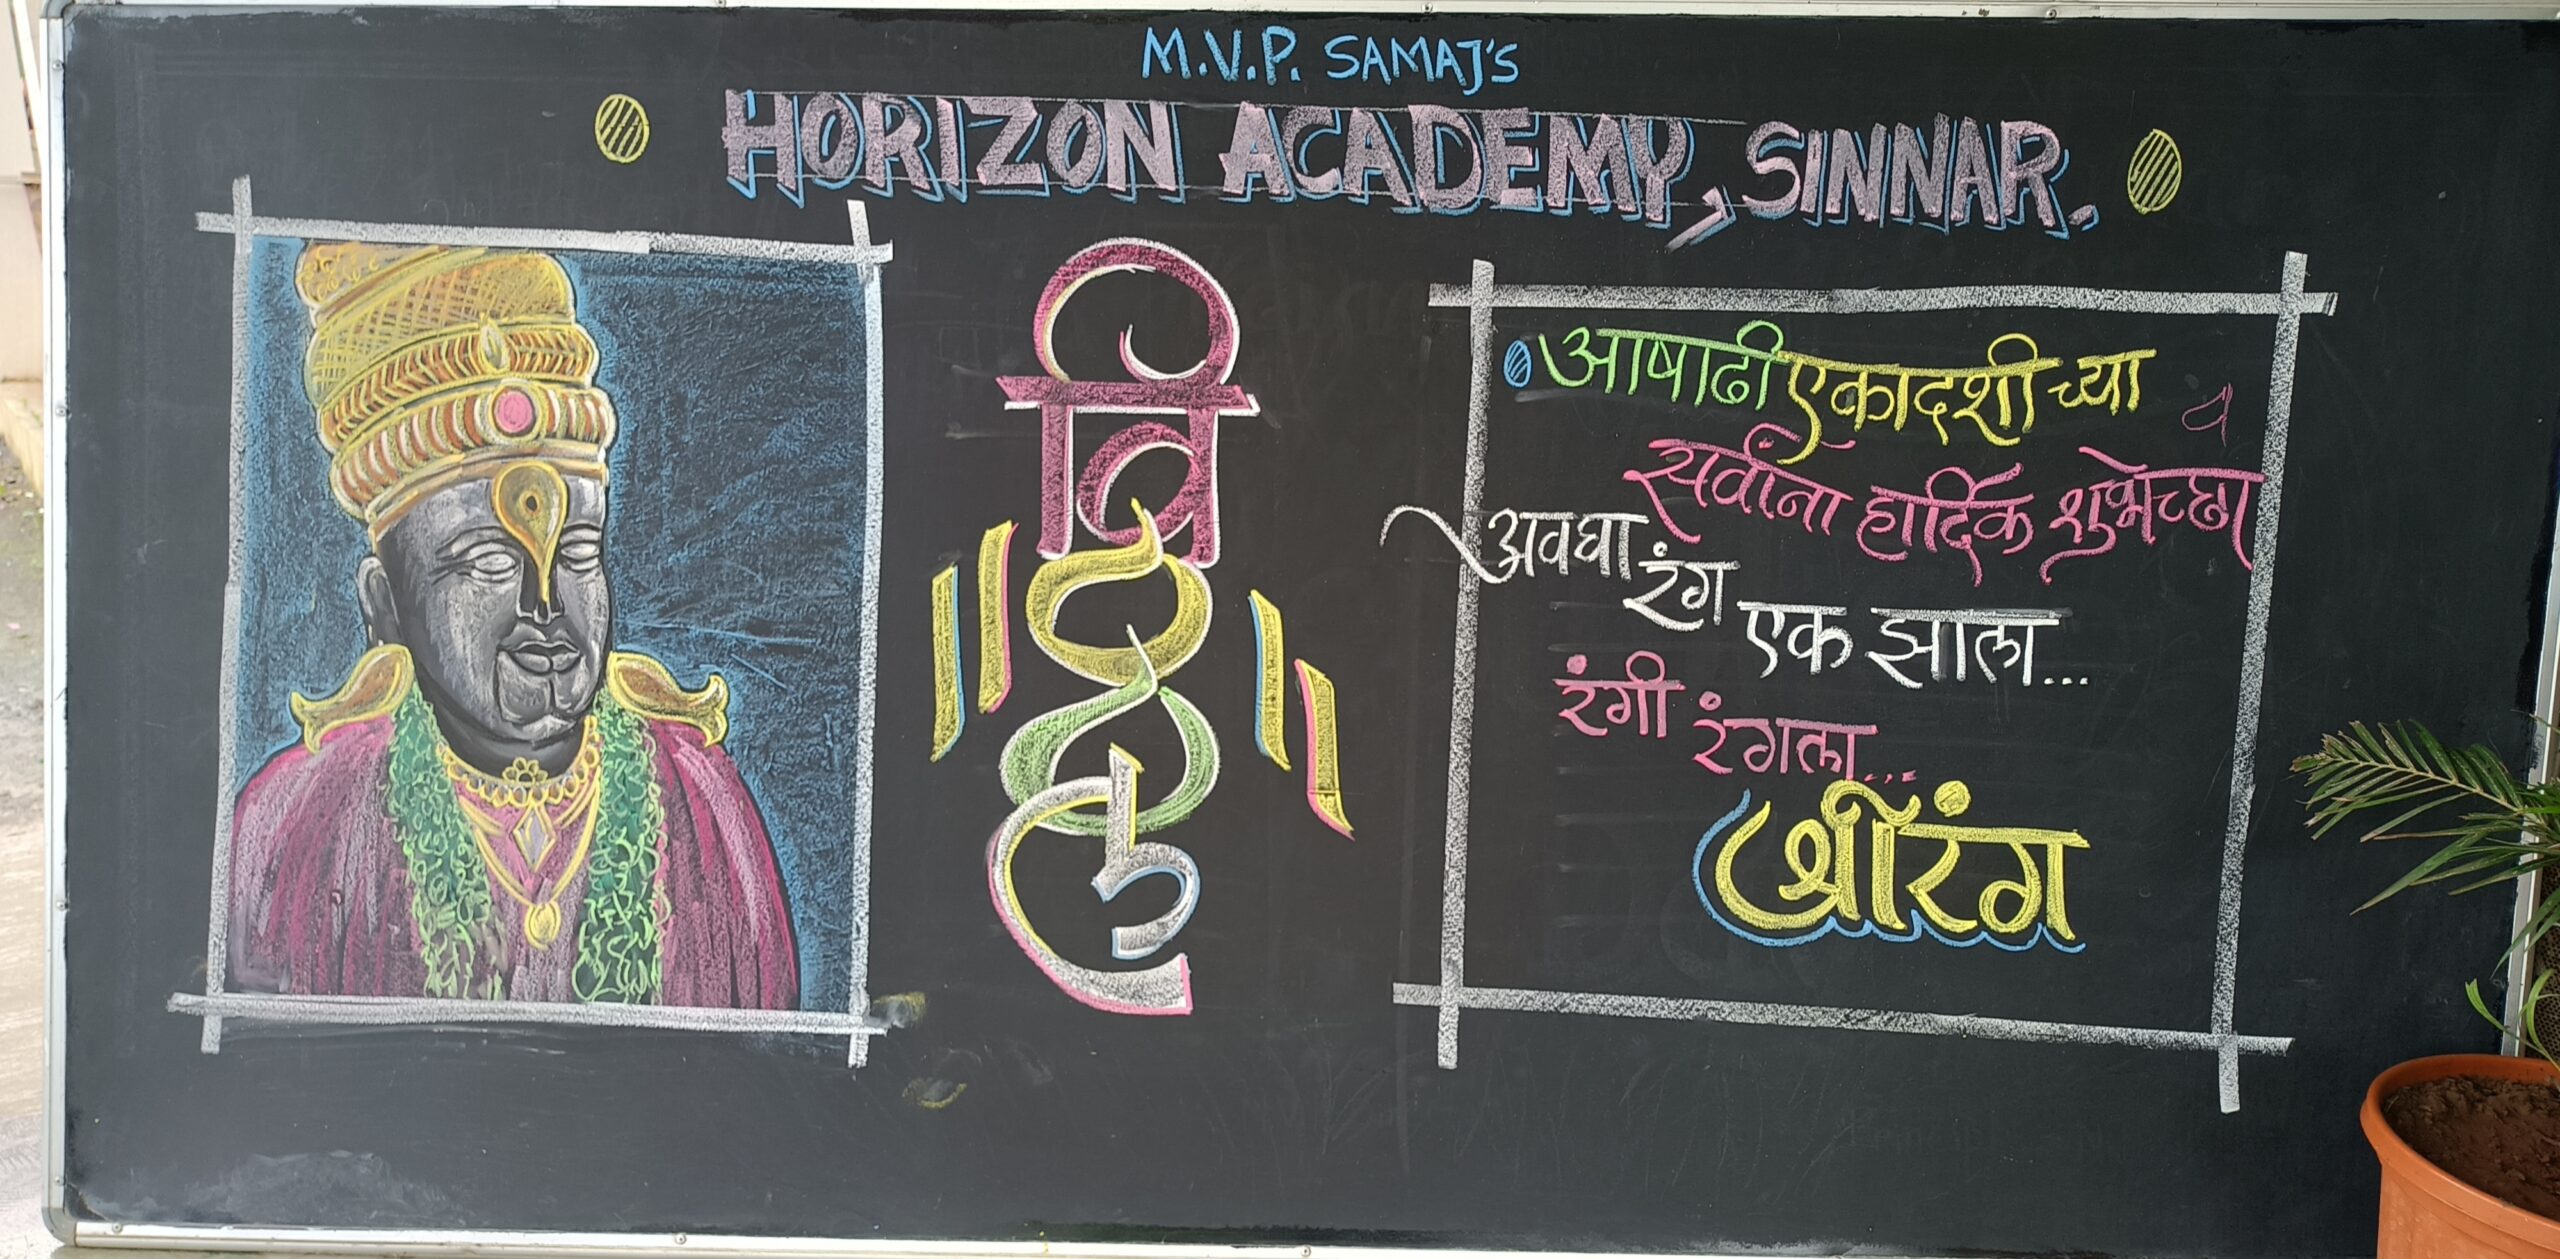 M.V.P. SAMAJ'S
HORIZON ACADEMY, SINNAR.
॥ विठ्ठल ॥
आषाढी एकादशीच्या
सर्वांना हार्दिक शुभेच्छा
अवघा रंग एक झाला...
रंगी रंगला...
श्रीरंग